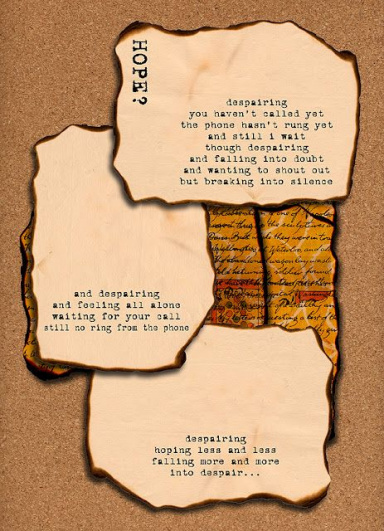 HOPE?
despairing
you haven't called yet
the phone hasn't rung yet
and still i wait
though despairing
and falling into doubt
and wanting to shout out
but breaking into silence
and despairing
and feeling all alone
waiting for your call
still no ring from the phone
despairing
hoping less and less
falling more and more
into despair...